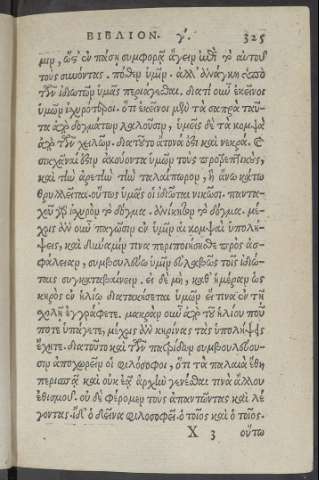 ΒΙΒΛΙΟΝ. γʹ. 325
μιν, ὥστ᾽ ἐν πάσῃ συμφορᾷ ἄγειν ἐπὶ τὸ αὐτοῦ
τοὺς συνόντας. πόθεν ὑμῖν. ἀλλ᾽ ἀνάγκη ὑπὸ
τῶν ἰδιωτῶν ὑμᾶς περιάγεσθαι. διατί οὖν ἐκεῖνοι
ὑμῶν ἰσχυρότεροι. ὅτι ἐκεῖνοι μὲν τὰ σαπρὰ ταῦ-
τα ἀπὸ δογμάτων λαλοῦσιν, ὑμεῖς δὲ τὰ κομψὰ
ἀπὸ τῶν χειλῶν. διατοῦτο ἄτονά ἐστι καὶ νεκρά. καὶ
σικχᾶναί ἐστιν ἀκούοντα ὑμῶν τοὺς προτρεπτικοὺς,
καὶ τὴν ἀρετὴν τὴν ταλαίπωρον, ἣ ἄνω κάτω
θρυλλεῖται. οὕτως ὑμᾶς οἱ ἰδιῶται νικῶσι. παντα-
χοῦ γὰρ ἰσχυρὸν τὸ δόγμα. ἀνίκητον τὸ δόγμα. μέ-
χρις ἂν οὖν παγῶσιν ἐν ὑμῖν αἱ κομψαὶ ὑπολή-
ψεις, καὶ δύναμίν τινα περιποιήσησθε πρὸς ἀσ-
φάλειαν, συμβουλεύω ὑμῖν εὐλαβῶς τοῖς ἰδιώ-
ταις συγκαταβαίνειν. εἰ δὲ μὴ, καθ᾽ ἡμέραν ὡς
κηρὸς ἐν ἡλίῳ διατακήσεται ὑμῶν εἴ τινα ἐν τῇ
σχολῇ ἐγγράφετε. μακρὰν οὖν ἀπὸ τοῦ ἡλίου πού
ποτε ὑπάγετε, μέχρις ἂν κηρίνας τὰς ὑπολήψεις
ἔχητε. διατοῦτο καὶ τῶν πατρίδων συμβουλεύου-
σιν ἀποχωρεῖν οἱ φιλόσοφοι, ὅτι τὰ παλαιὰ ἔθη
περισπᾷ καὶ οὐκ ἐᾷ ἀρχὴν γενέσθαι τινὰ ἄλλου
ἐθισμοῦ. οὐ δὲ φέρομεν τοὺς ἀπαντῶντας καὶ λέ-
γοντας. ἴδ᾽ ὁ δεῖνα φιλοσοφεῖ. ὁ τοῖος καὶ ὁ τοῖος.
X 3 οὕτω